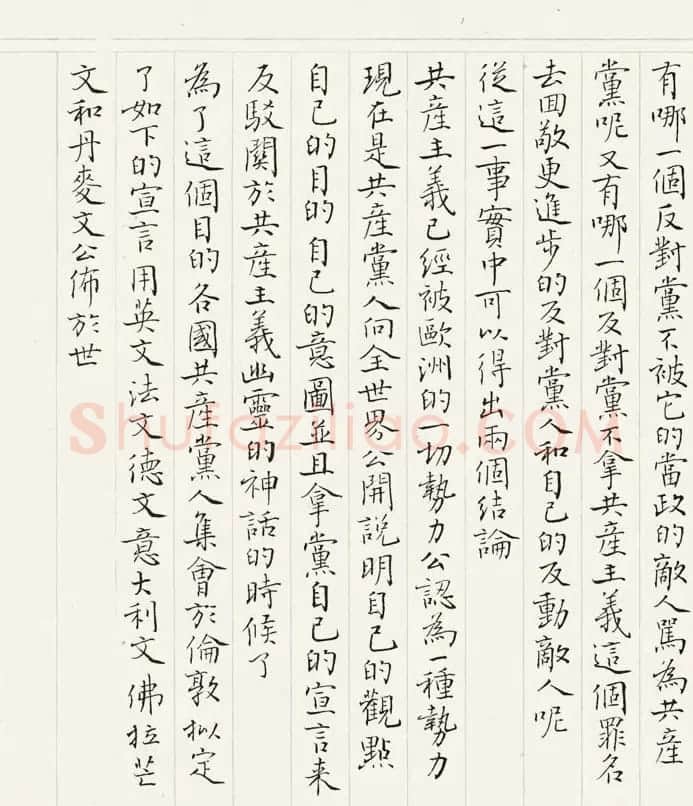 有哪一個反對黨不被它的當政的敵人罵為共産
黨呢又有哪一個反對黨不拿共産主義這個罪名
去回敬更進步的反對黨人和自己的反動敵人呢
從這一事實中可以得出兩個結論
共産主義已經被歐洲的一切勢力公認為一種勢力
現在是共産黨人向全世界公開說明自己的觀點
自己的目的自己的意圖並且拿黨自己的宣言来
反駁關於共産主義幽靈的神話的時候了
為了這個目的各國共産黨人集會於倫敦擬定
了如下的宣言用英文法文德文意大利文佛拉芒
文和丹麥文公佈於世
Shufaziliao.COM